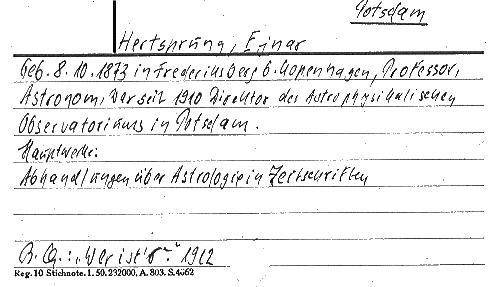 Potsdam
Hertsprung, Ejnar
Geb. 8. 10. 1873 in Frederiksberg b. Kopenhagen, Professor,
Astronom, war seit 1910 Direktor des Astrophysikalischen
Observatoriums in Potsdam.
Hauptwerke:
Abhandlungen über Astrologie in Zeitschriften
B. Q.: „Wer ist's" 1912
Reg. 10 Stichnote. 1. 50. 232000, A. 803. S. 4662